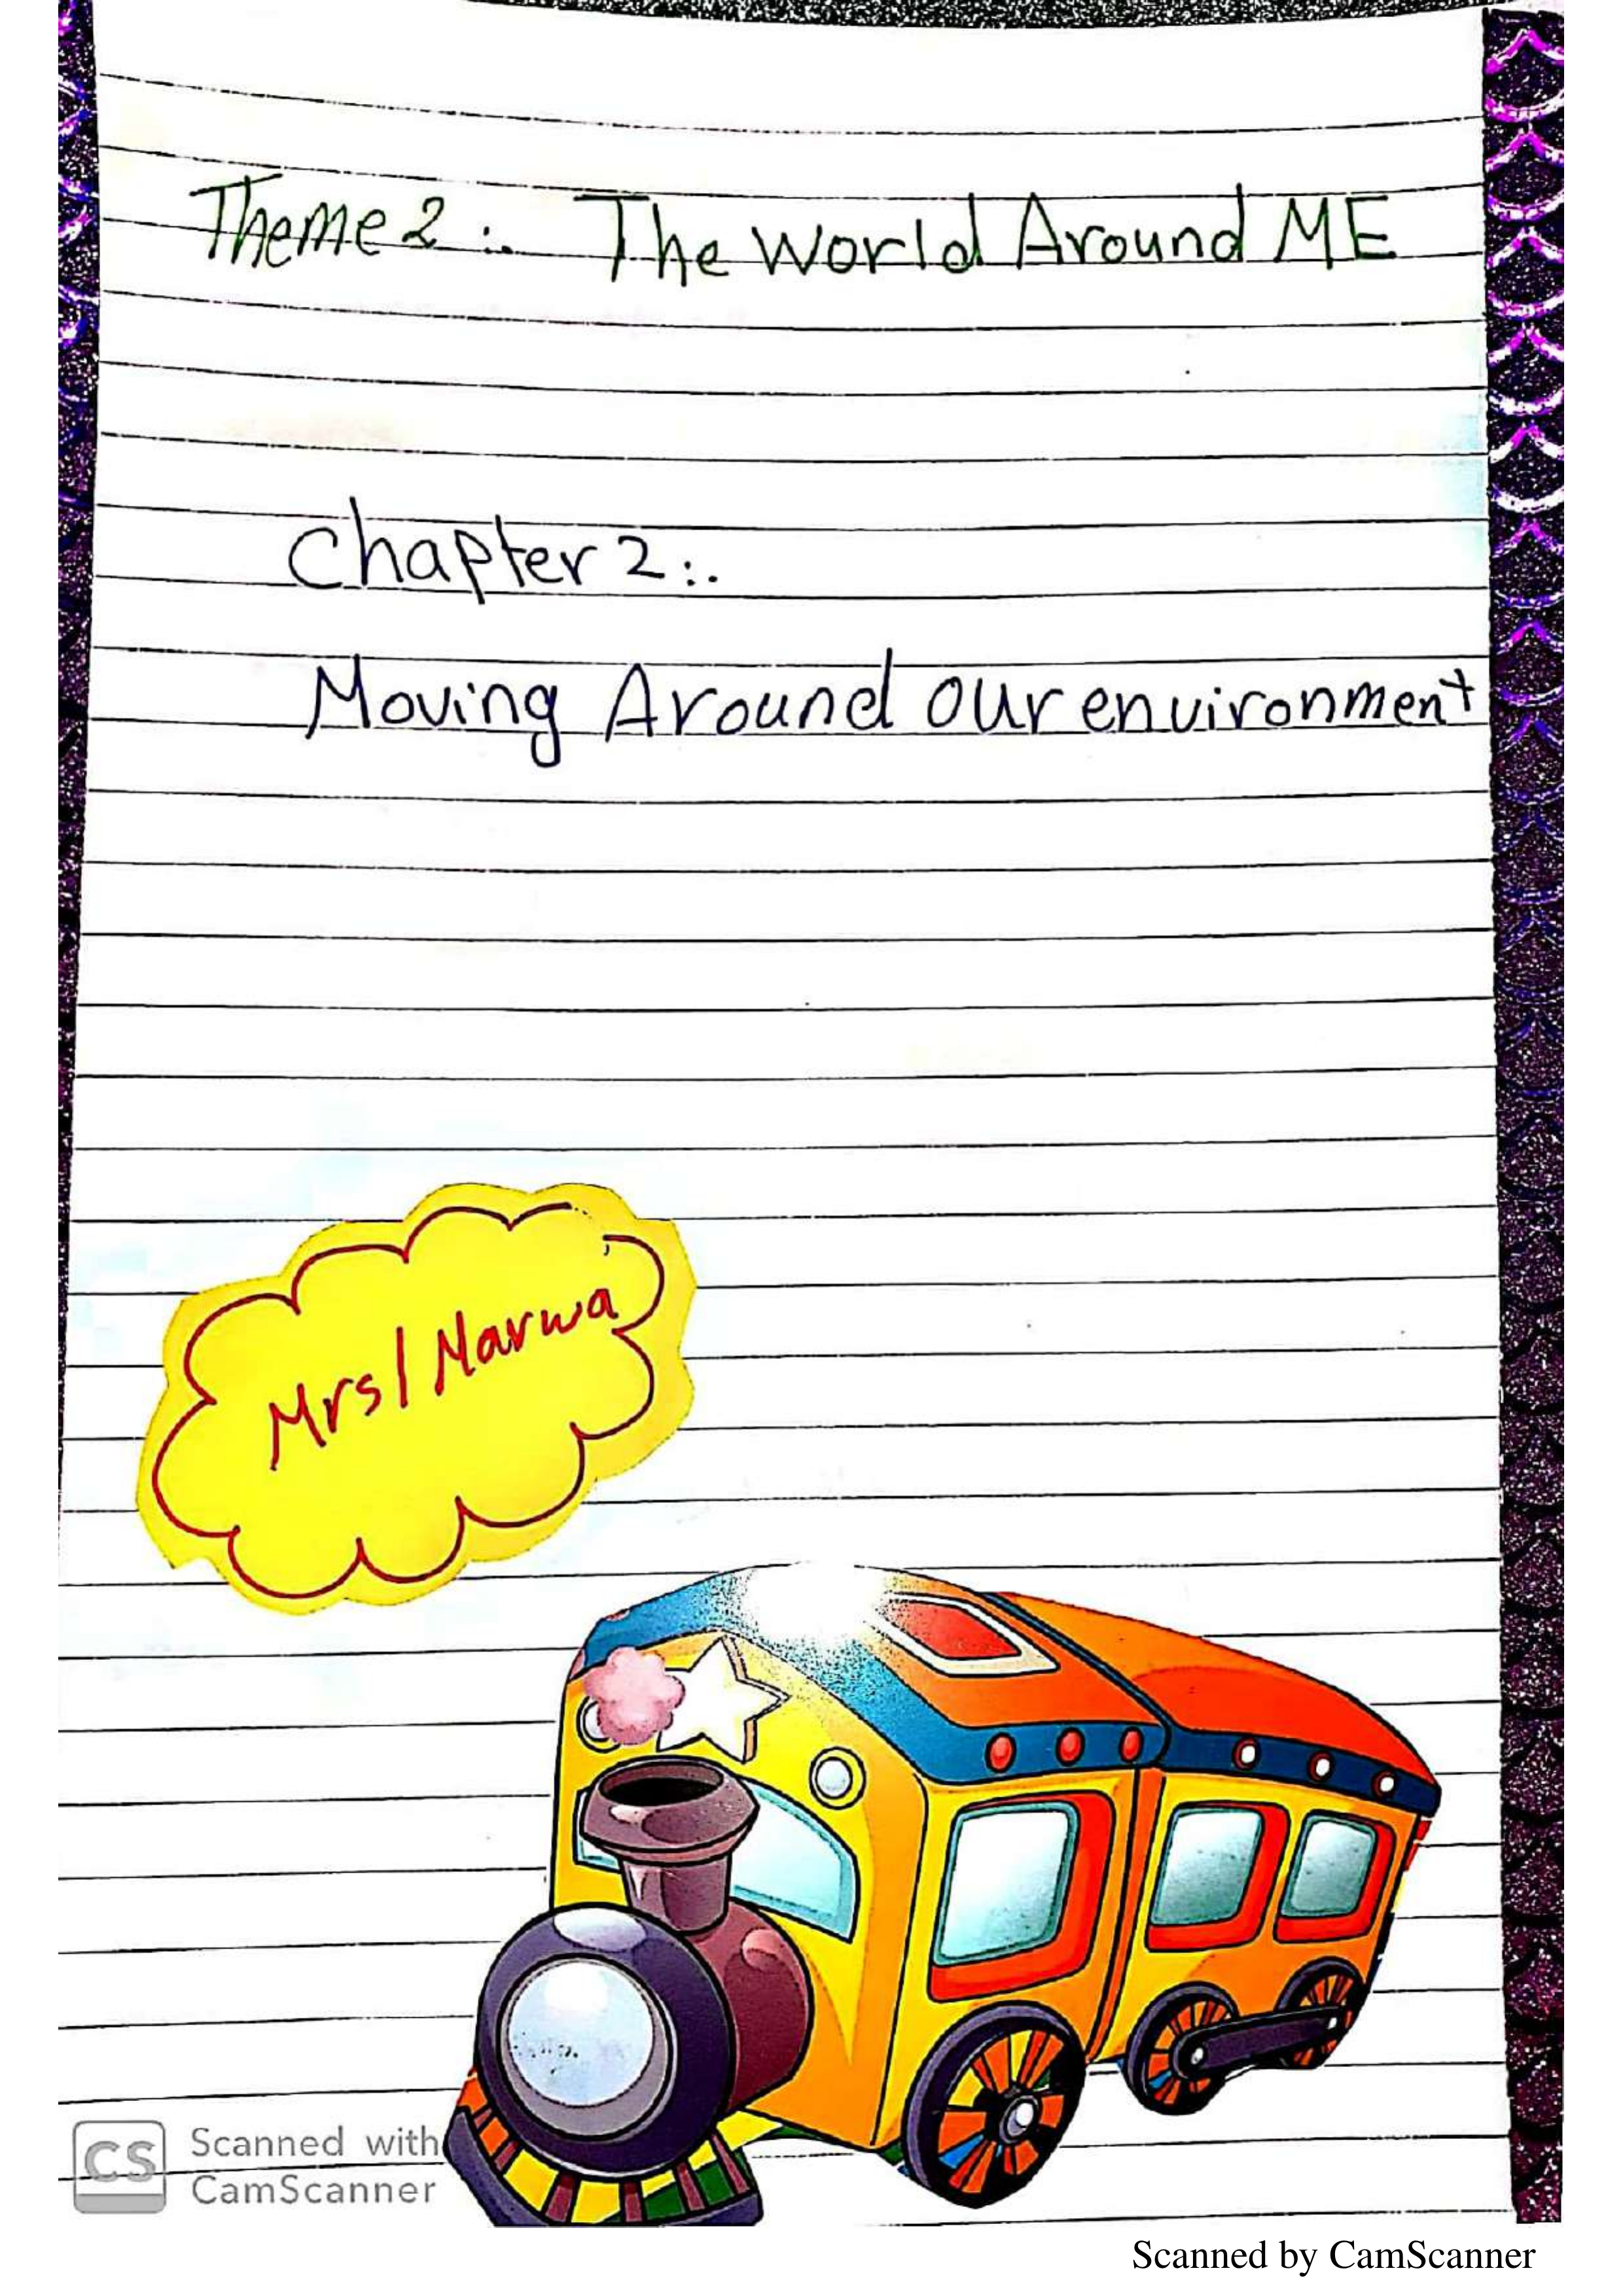 Theme 2 :. The World Around ME
Chapter 2 :.
Moving Around our environment
Mrs/ Marwa
CS
Scanned with
CamScanner
Scanned by CamScanner